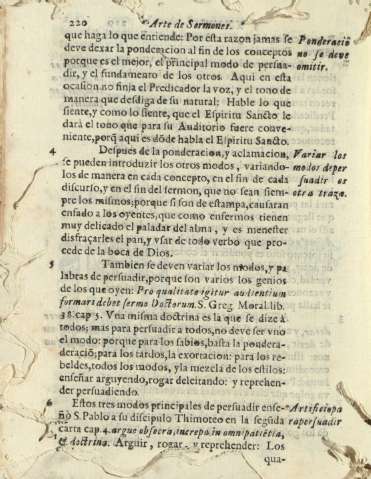 220 Arte de Sermones.
que haga lo que entiende: Por esta razon jamas se
deve dexar la ponderacion al fin de los conceptos
porque es el mejor, el principal modo de persua-
dir, y el fundamento de los otros. Aqui en esta
ocasion no finja el Predicador la voz, y el tono de
manera que desdiga de su natural: Hable lo que
siente, y como lo siente, que el Espiritu Sancto le
dará el tono que para su Auditorio fuere conve-
niente, porq̃ aqui es dõde habla el Espiritu Sancto.
Ponderaciõ
no se deve
omitir.
4 Despues de la ponderacion, y aclamacion,
se pueden introduzir los otros modos, variando-
los de manera en cada concepto, en el fin de cada
discurso, y en el fin del sermon, que no sean siem-
pre los mismos; porque si son de estampa, causaran
enfado a los oyentes, que como enfermos tienen
muy delicado el paladar del alma, y es menester
disfraçarles el pan, y vsar de todo verbo que pro-
cede de la boca de Dios.
Variar los
modos de per
suadir es
otra traza.
5 Tambien se deven variar los modos, y pa
labras de persuadir, porque son varios los genios
de los que oyen: Pro qualitate igitur audientium
formari debet sermo Doctorum. S. Greg Moral. lib.
38 cap 5. Vna misma doctrina es la que se dize à
todos; mas para persuadir a todos, no deve ser vno
el modo: porque para los sabios, basta la pondera-
deraciõ; para los tardos, la exortacion: para los re-
beldes, todos los modos, y la mezcla de los estilos:
enseñar arguyendo, rogar deleitando: y reprehen-
der persuadiendo.
6 Estos tres modos principales de persuadir ense-
ñò S. Pablo a su discipulo Thimoteo en la segũda
carta cap. 4. argue obsecra, increpa in omni patiẽtia,
& doctrina. Arguir, rogar, y reprehender: Los
Artificio pa
ra persuadir
qua-